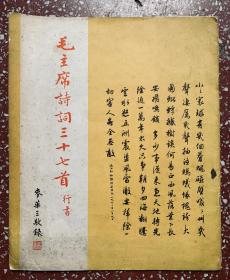 小小寰球有幾個蒼蠅碰壁嗡嗡叫幾
聲凄厲幾聲抽泣螞蟻緣槐誇大
國蚍蜉撼樹談何易正西風落葉下長
安飛鳴鏑多少事從來急天地轉光
陰迫一萬年太久只爭朝夕四海翻騰
雲水怒五洲震盪風雷激要掃除一
切害人蟲全無敵
毛主席詩詞三十七首 行書
麥華三敬錄